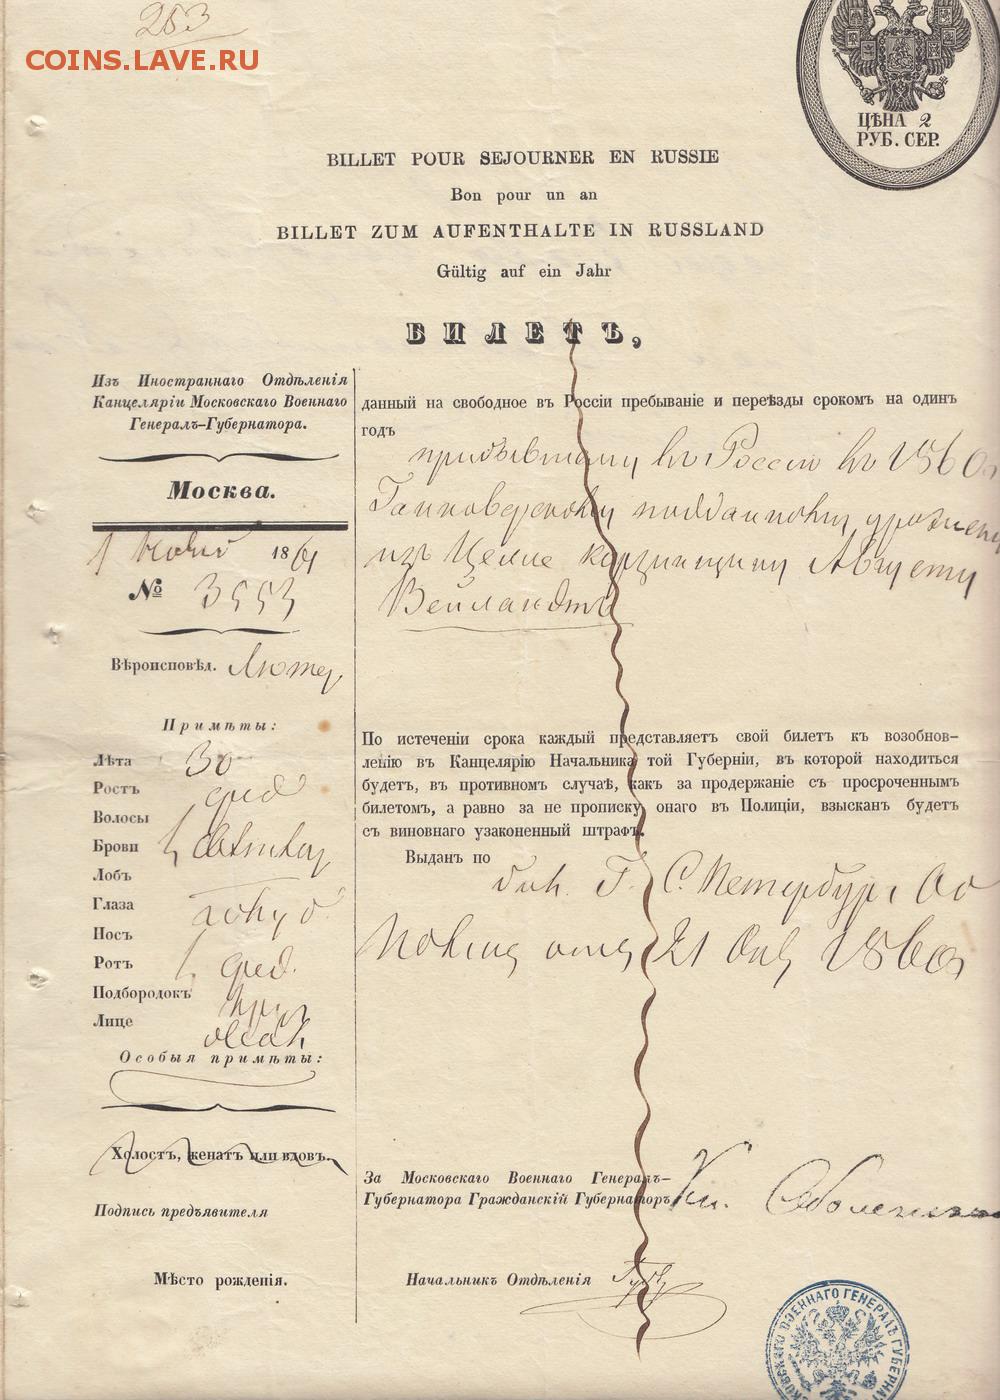 253
COINS.LAVE.RU
ЦѢНА 2
РУБ. СЕР.
BILLET POUR SEJOURNER EN RUSSIE
Bon pour un an
BILLET ZUM AUFENTHALTE IN RUSSLAND
Gültig auf ein Jahr
БИЛЕТЪ,
Изъ Иностраннаго Отдѣленія
Канцеляріи Московскаго Военнаго
Генералъ-Губернатора.
Москва.
1861
№ 3553
Вѣроисповѣд. Лютер
Примѣты:
Лѣта 30
Ростъ сред
Волосы
Брови
Лобъ
Глаза голуб
Носъ
Ротъ сред.
Подбородокъ
Лице
Особыя примѣты:
Холостъ, женатъ или вдовъ.
Подпись предъявителя
Мѣсто рожденія.
данный на свободное въ Россіи пребываніе и переѣзды срокомъ на одинъ
годъ
прибывшему въ Россію въ 1860
Ганноверскому подданному,
изъ Целле Августу
Вейландтъ
По истеченіи срока каждый представляетъ свой билетъ къ возобнов-
ленію въ Канцелярію Начальника той Губерніи, въ которой находиться
будетъ, въ противномъ случаѣ, какъ за продержаніе съ просроченнымъ
билетомъ, а равно за не прописку онаго въ Полиціи, взысканъ будетъ
съ виновнаго узаконенный штрафъ.
Выданъ по
бил. Г. С. Петербур
21 1860
За Московскаго Военнаго Генералъ-
Губернатора Гражданскій Губернаторъ Кн. Оболенскій
Начальникъ Отдѣленія
ВОЕННАГО ГЕНЕРАЛЪ ГУБЕРН